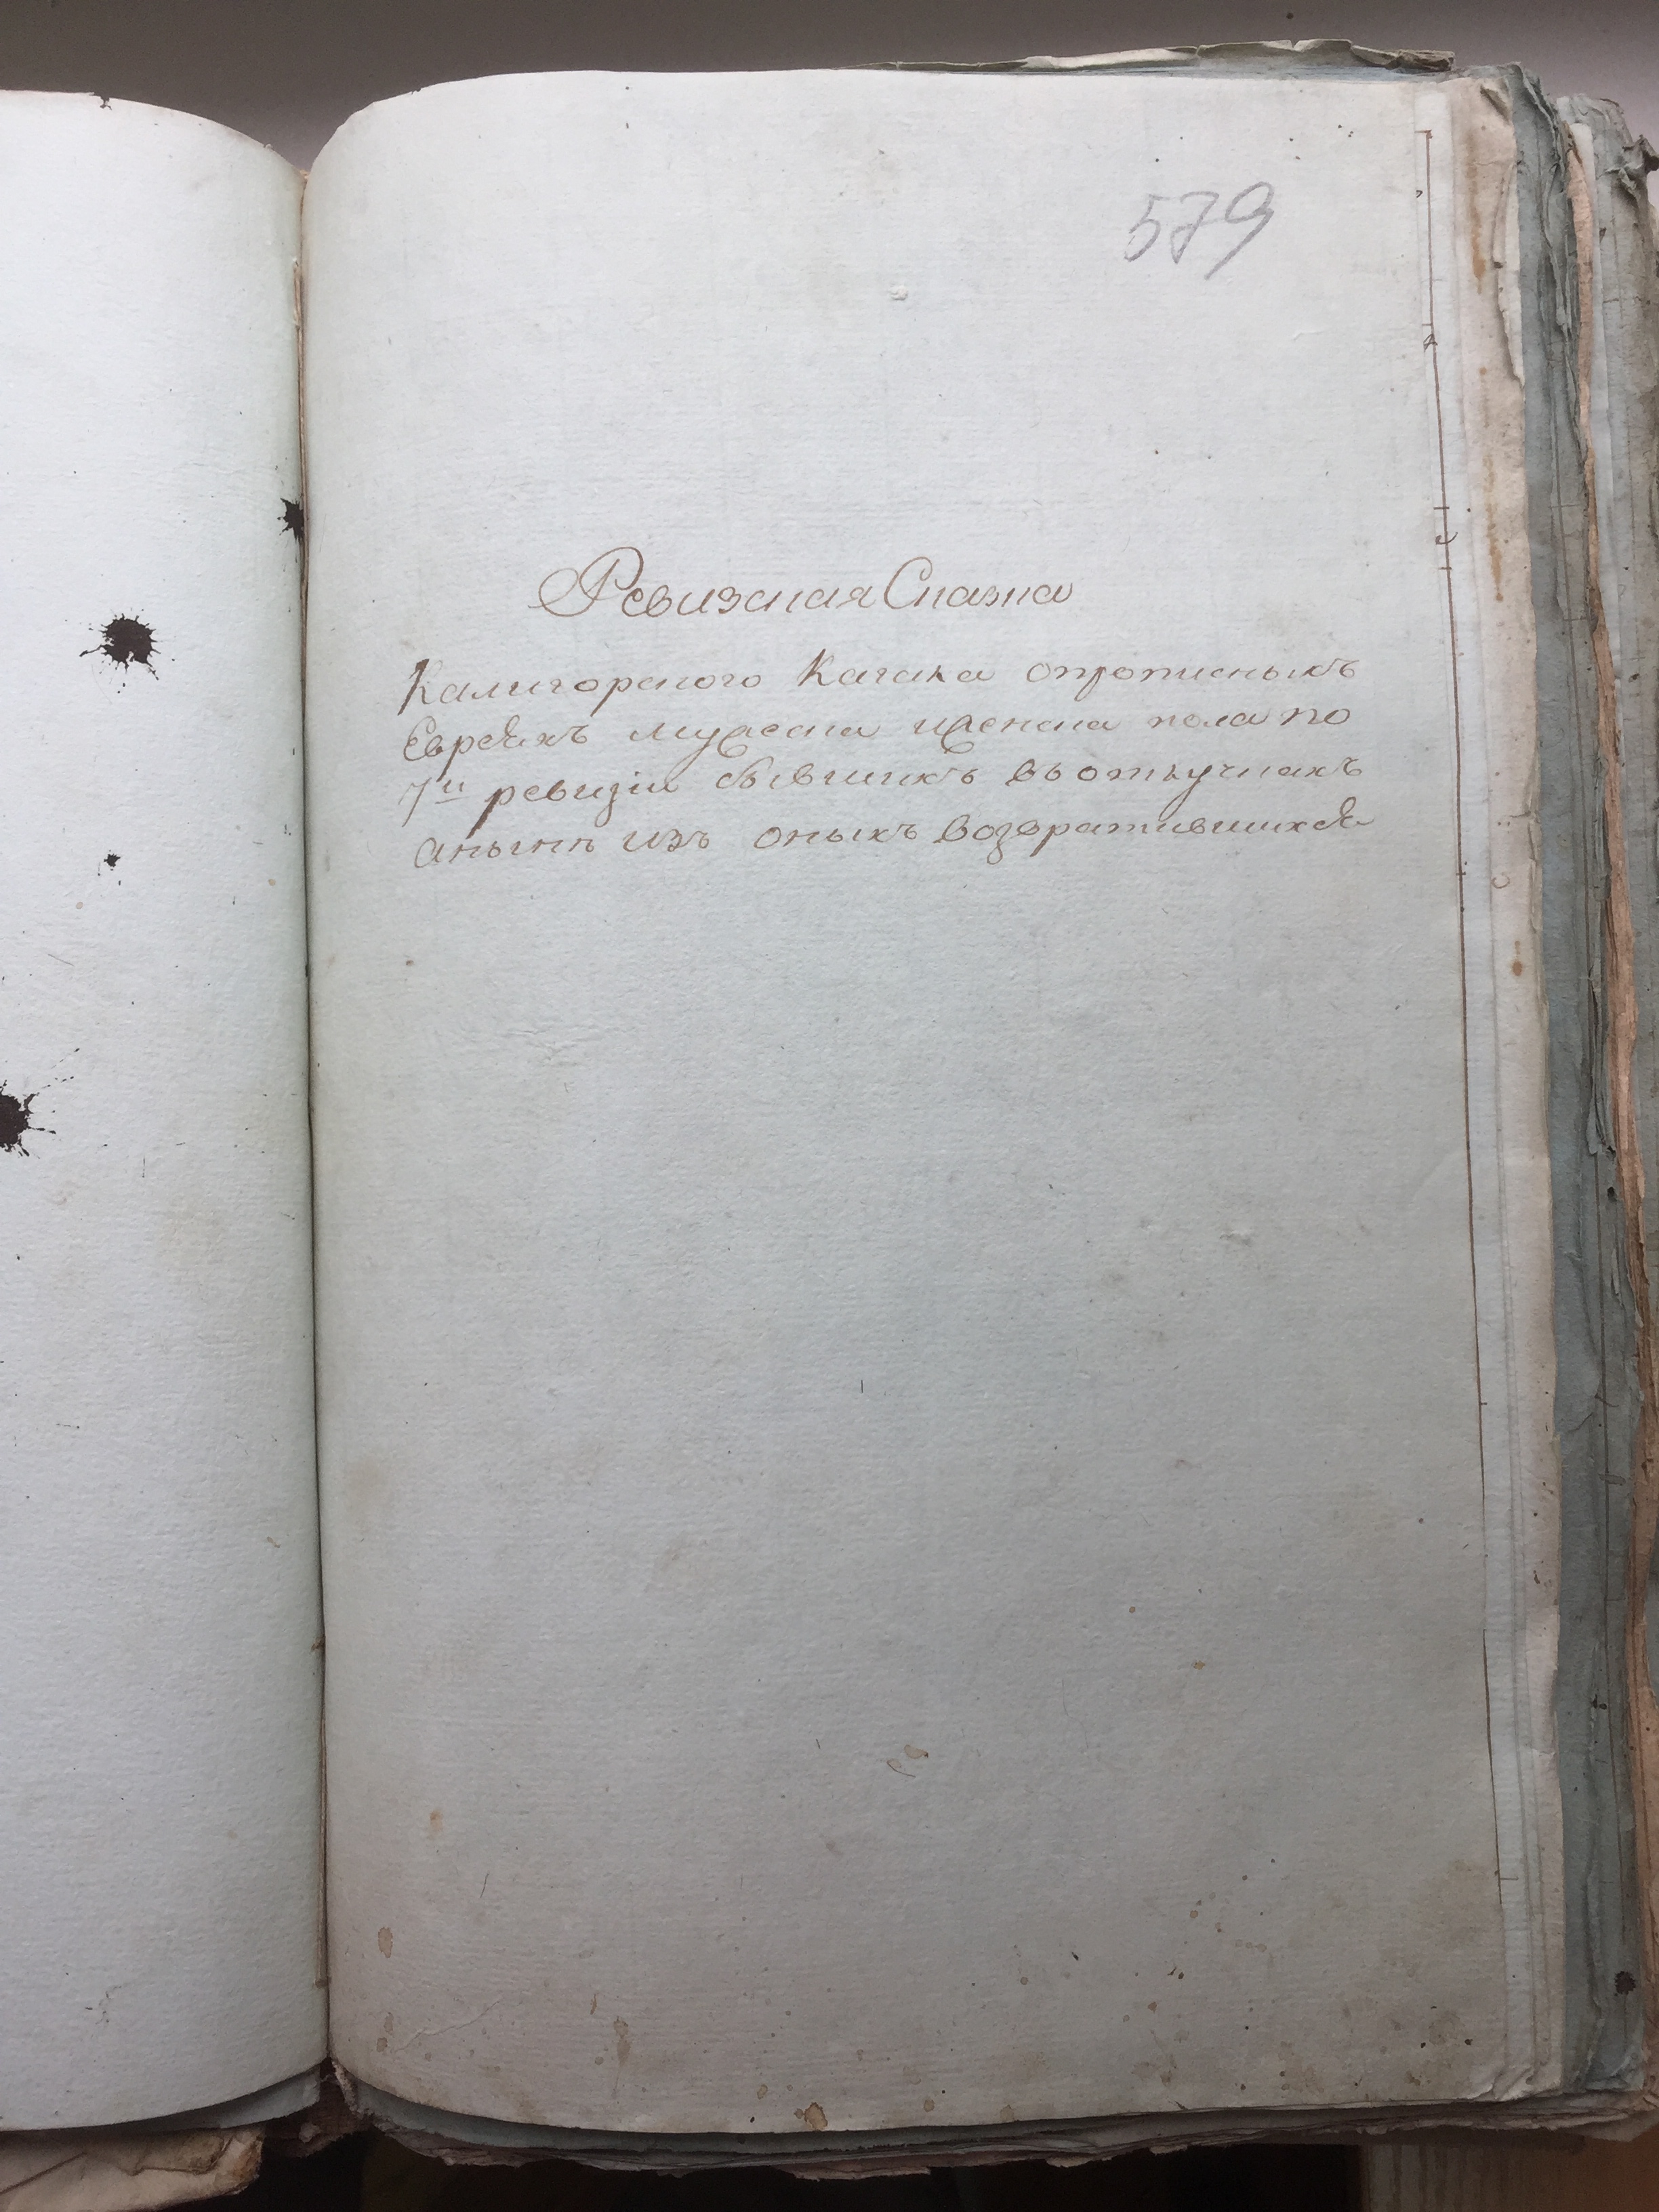 579
Ревизская Сказка
Калигорского Кагала опрописныхъ
Евреяхъ мужеска иженска пола по
7й ревизіи бывшихъ въ отлучкахъ
анынѣ изъ оныхъ возвратившихся